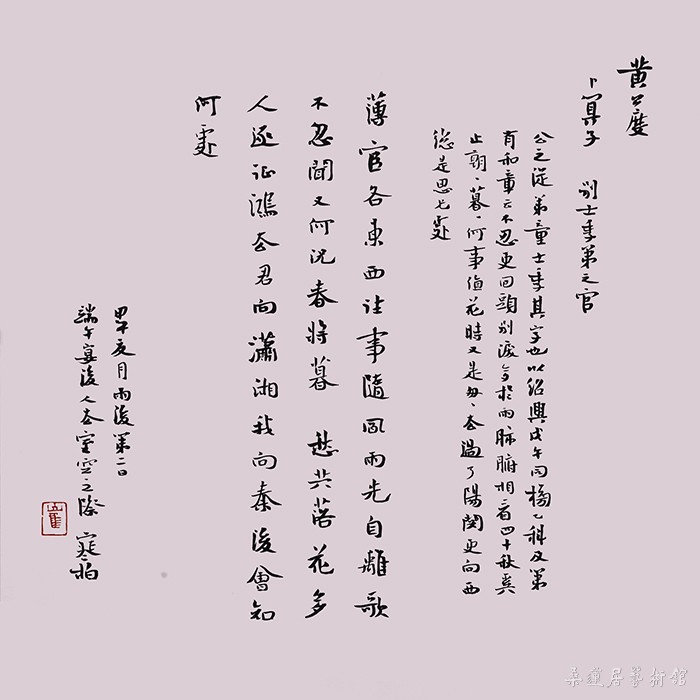 黄公度
卜算子 别士季弟之官
公之從弟童士季其字也以紹興戊午同榜乙科及第
有和章云不忍更回頭别淚多於雨肺腑相看四十秋奚
止朝〻暮〻何事值花時又是匆〻去過了陽関更向西
總是思兄處
薄宦各東西往事隨風雨先自離歌
不忍聞又何况春將暮 愁共落花多
人逐征鴻去君向瀟湘我向秦後會知
何處
甲午夏月雨後第二日
端午宴後人去室空之際 寒柏
桑蓮居藝術館